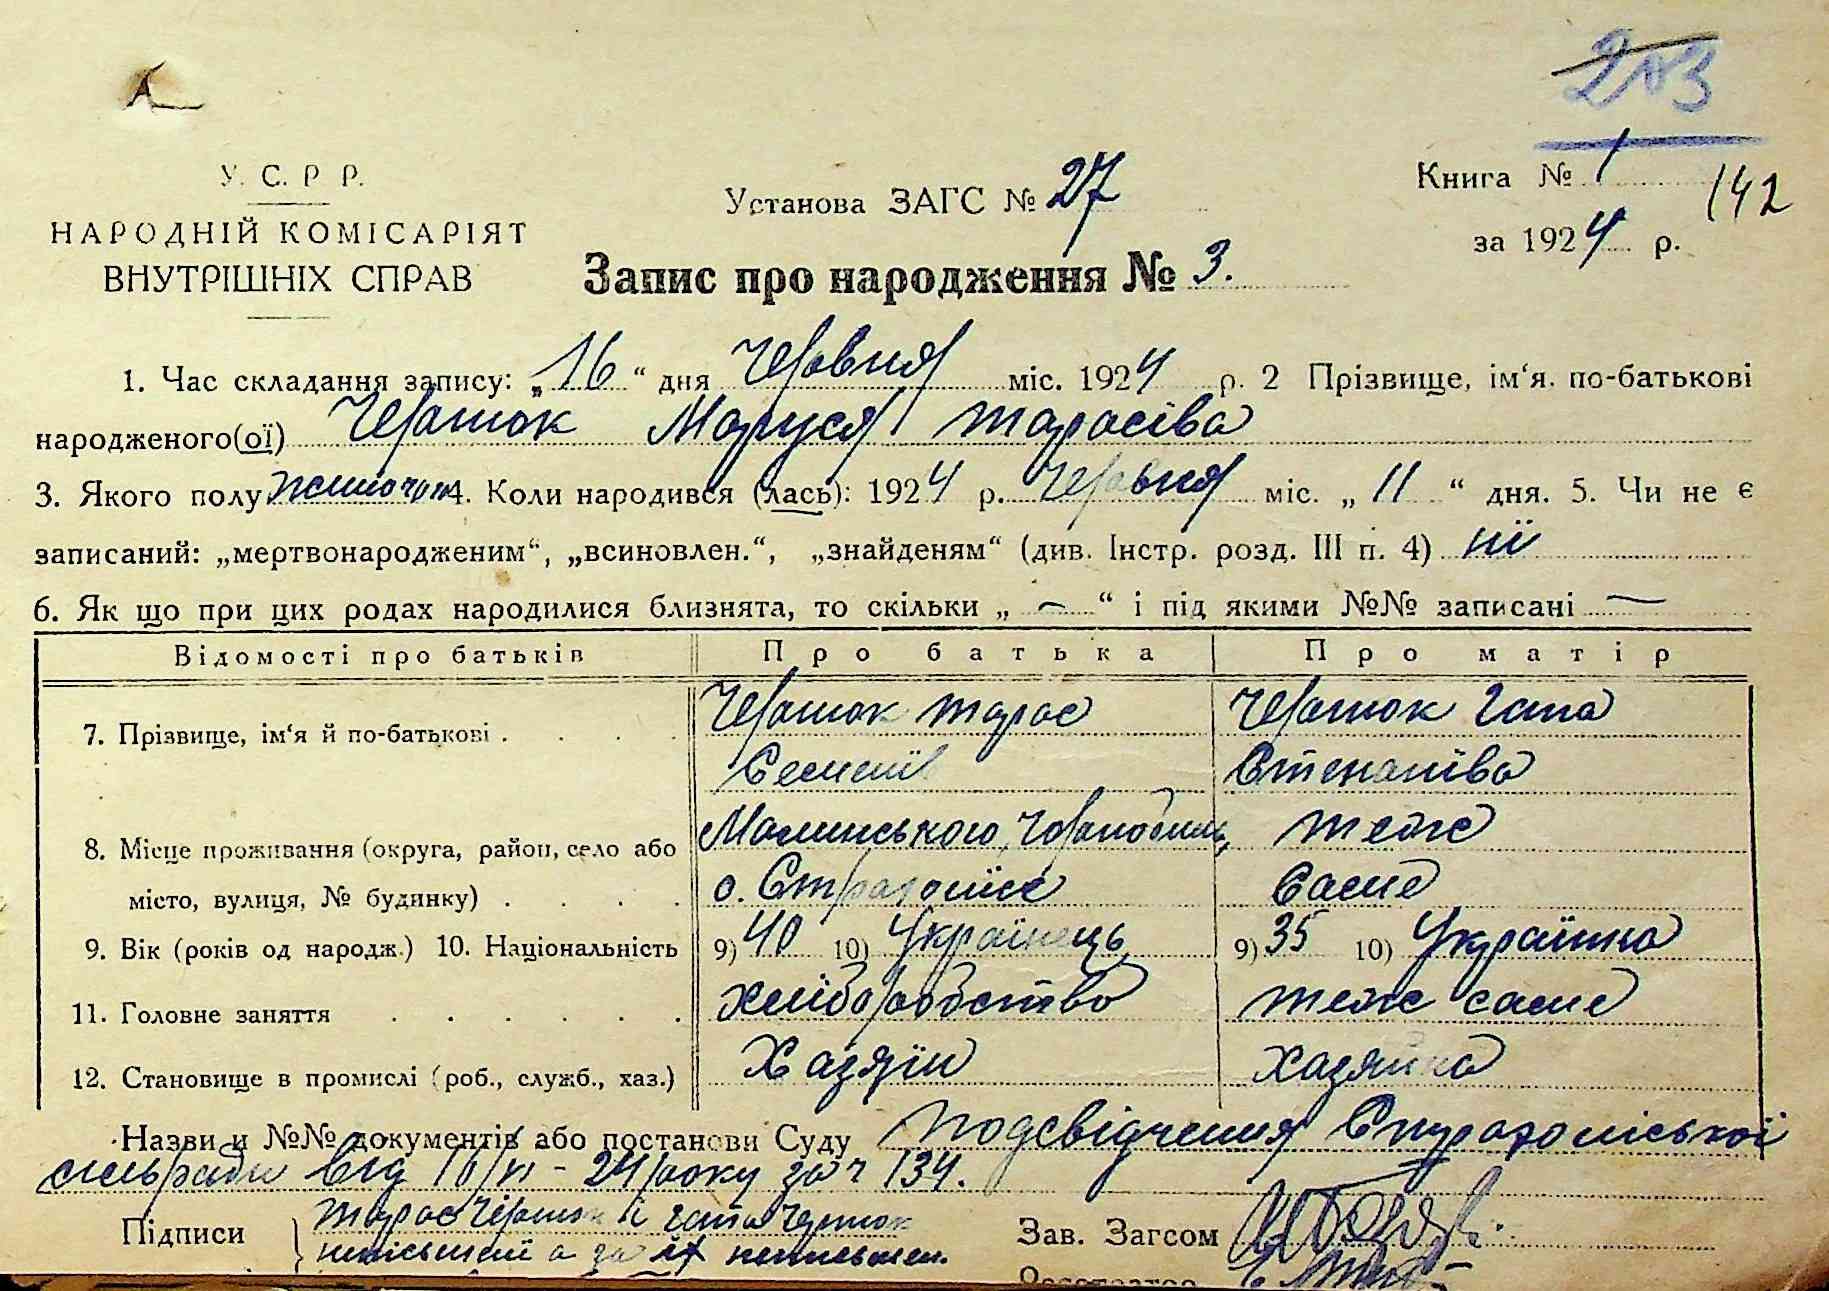 203
У. С. Р Р.
НАРОДНІЙ КОМІСАРІЯТ
ВНУТРІШНІХ СПРАВ
Установа ЗАГС № 27
Книга № 1
142
за 1924 р.
Запис про народження № 3.
1. Час складання запису: „16“ дня Червня міс. 1924 р. 2 Прізвище, ім‘я. по-батькові
народженого(ої) Маруся Тарасівα
3. Якого полу 4. Коли народився (лась): 1924 р. Червня міс. „11“ дня. 5. Чи не є
записаний: „мертвонародженим“, „всиновлен.“, „знайденям“ (див. Інстр. розд. III п. 4) ні
6. Як що при цих родах народилися близнята, то скільки „ — “ і під якими №№ записані —
Відомості про батьків Про батька Про матір
7. Прізвище, ім‘я й по-батькові . . . . Тарас Гапа
Степанівα
8. Місце проживання (округа, район, село або Малинського, теж
місто, вулиця, № будинку) . . . . саме
9. Вік (років од народж.) 10. Національність 9) 40 10) Українець 9) 35 10) Українка
11. Головне заняття . . . . . . хліборобство теж саме
12. Становище в промислі (роб., служб., хаз.) Хазяїн хазяйка
Назви и №№ документів або постанови Суду подсвідчення
сільради від 24 року за ч 134.
Підписи Тарас і Гапа
неписьмені а за їх неписьмен.
Зав. Загсом